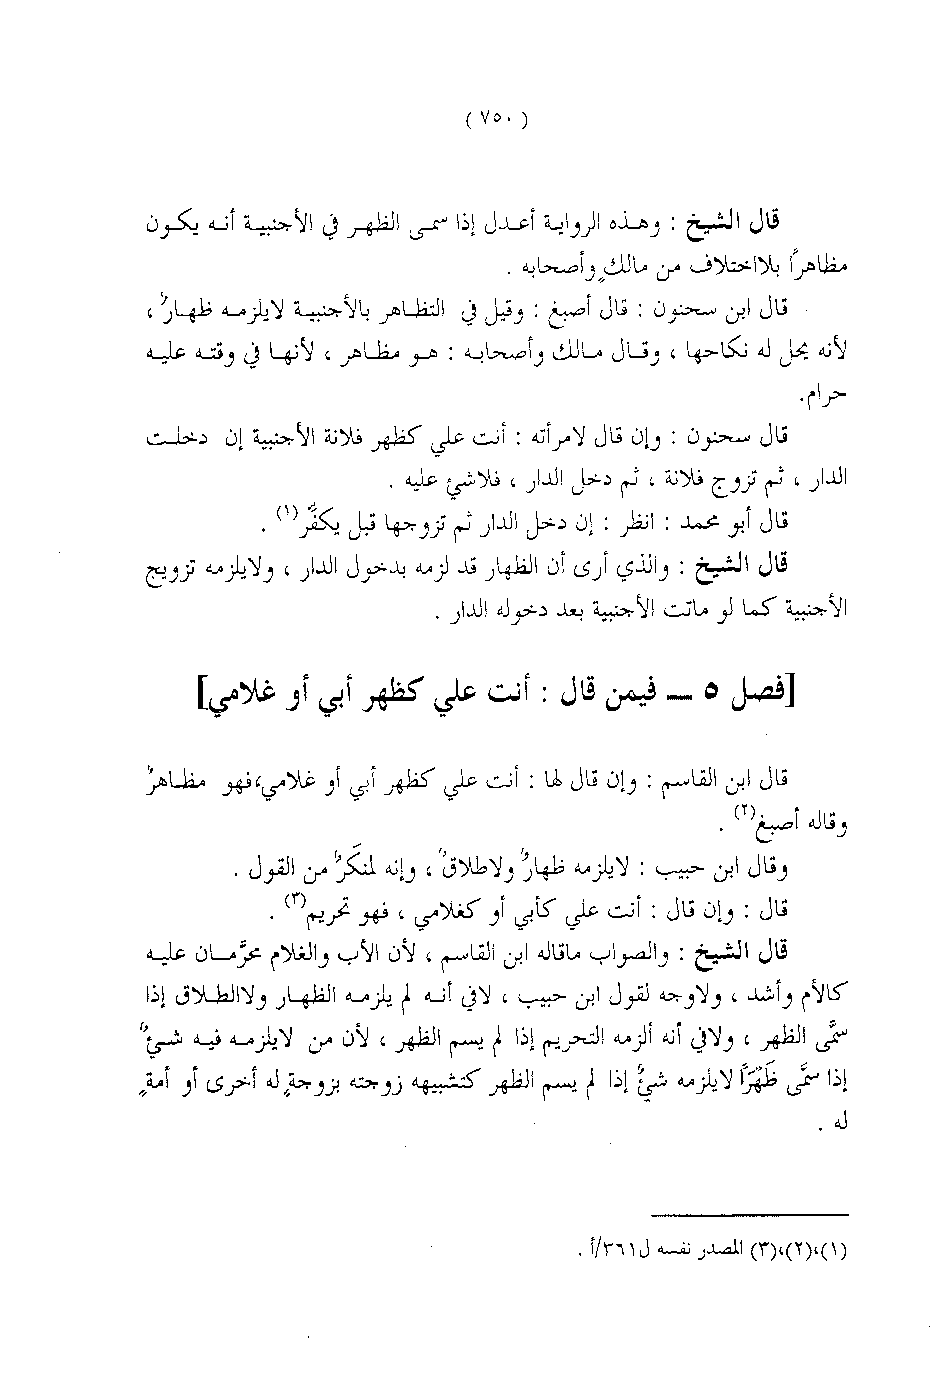 ( ٧٥٠ )
قال الشيخ : وهذه الرواية أعدل إذا سمى الظهر في الأجنبية أنه يكون
مظاهراً بلااختلاف من مالكٍ وأصحابه .
قال ابن سحنون : قال أصبغ : وقيل في التظاهر بالأجنبية لايلزمه ظهارٌ ،
لأنه يحل له نكاحها ، وقال مالك وأصحابه : هو مظاهر ، لأنها في وقته عليه
حرام.
قال سحنون : وإن قال لامرأته : أنت علي كظهر فلانة الأجنبية إن دخلت
الدار ، ثم تزوج فلانة ، ثم دخل الدار ، فلاشئ عليه .
قال أبو محمد : انظر : إن دخل الدار ثم تزوجها قبل يكفِّر(١) .
قال الشيخ : والذي أرى أن الظهار قد لزمه بدخول الدار ، ولايلزمه تزويج
الأجنبية كما لو ماتت الأجنبية بعد دخوله الدار .
[فصل ٥ ـــ فيمن قال : أنت علي كظهر أبي أو غلامي]
قال ابن القاسم : وإن قال لها : أنت علي كظهر أبي أو غلامي،فهو مظاهرٌ
وقاله أصبغ(٢) .
وقال ابن حبيب : لايلزمه ظهارٌ ولاطلاقٌ ، وإنه لمنكَرٌ من القول .
قال : وإن قال : أنت علي كأبي أو كغلامي ، فهو تحريم(٣) .
قال الشيخ : والصواب ماقاله ابن القاسم ، لأن الأب والغلام محرَّمان عليه
كالأم وأشد ، ولاوجه لقول ابن حبيب ، لافي أنه لم يلزمه الظهار ولاالطلاق إذا
سمَّى الظهر ، ولافي أنه ألزمه التحريم إذا لم يسم الظهر ، لأن من لايلزمه فيه شئٌ
إذا سمَّى ظَهْرَاً لايلزمه شئٌ إذا لم يسم الظهر كتشبيهه زوجته بزوجةٍ له أخرى أو أمةٍ
له .
(١)،(٢)،(٣) المصدر نفسه ل٣٦١/أ .